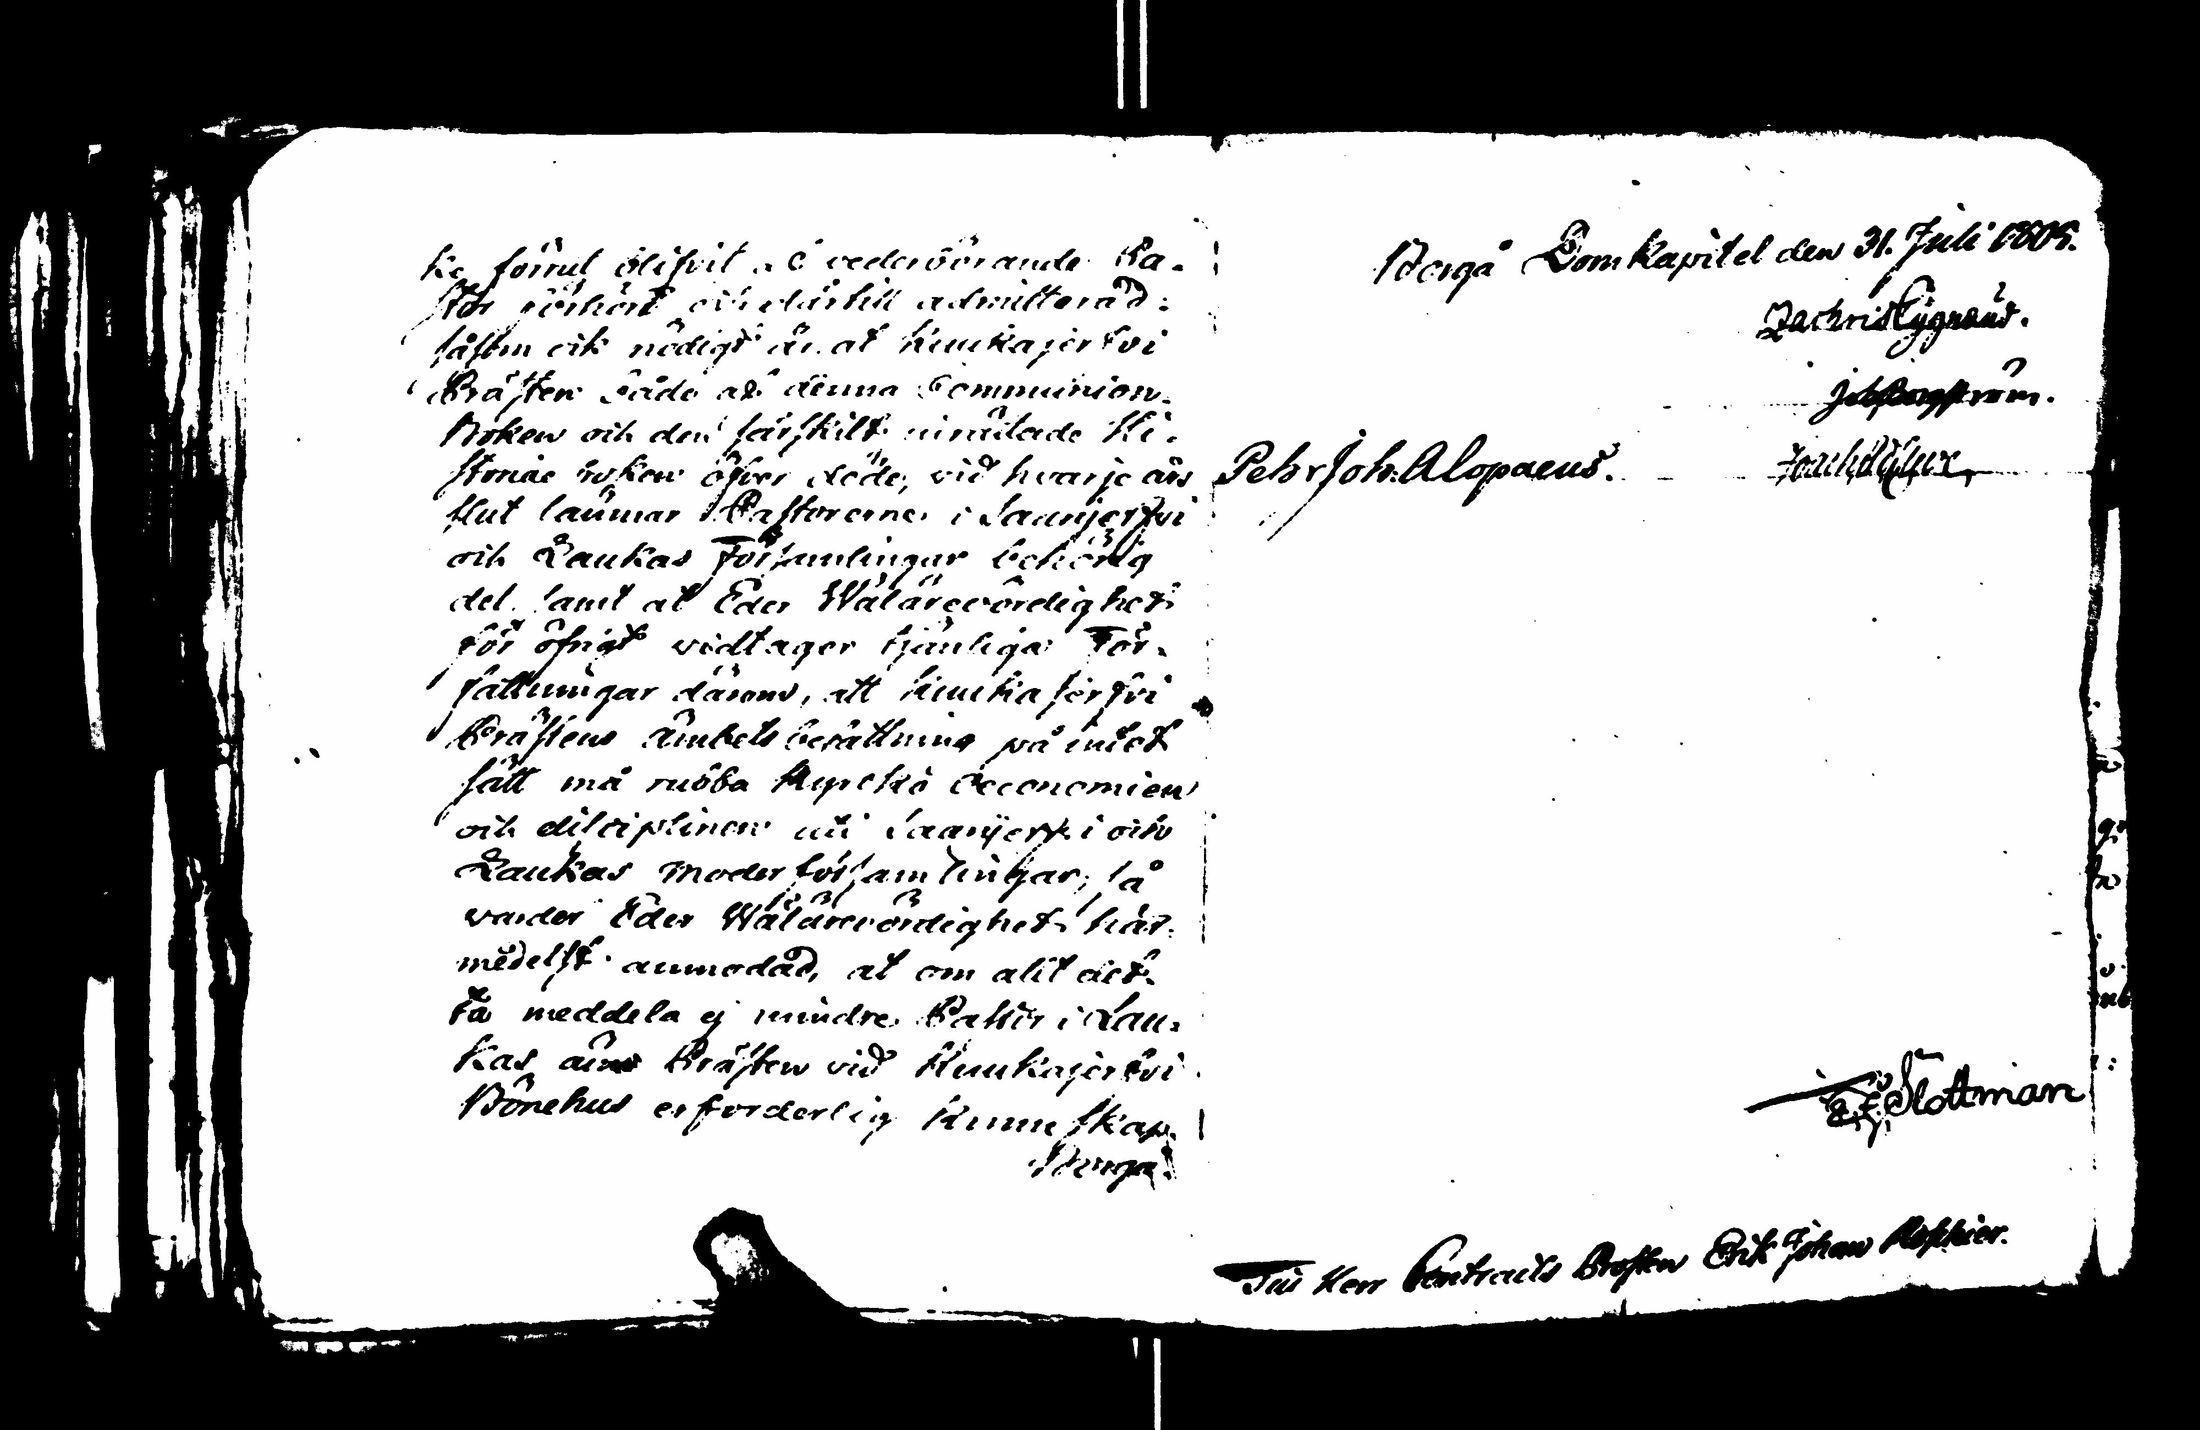 ke förrut blifvit af vederbörande Pa-
stor förhörd och därtill admitterad:
såsom ock nödigt är at Kuukajerfvi
Prästen både af denna Communion-
Boken och den särskilt inrättade Hi-
storiae boken öfver döde, vid hvarje års
slut lämnar Pastorerne i Saarijerfvi
och Laukas Församlingar behörig
del. samt at Eder Wälärevördighet
för öfrigt vidtager tjänliga För-
fattningar därom, att Kuukajerfvi
Prästens ämbets berättning på intet
sätt må rubba Kyrcko oeconomien
och disciplinen uti Saarijerfvi och
Laukas Moderförsamlingar; så
varder Eder Wälärevördighet här-
medelst anmodad, at om alt det-
ta meddela ej mindre Pastor i Lau-
kas än Prästen vid Kuukajerfvi
Bönehus erforderlig Kunnskap.
Borgå
Borgå Domkapitel den 31. Juli 1805.
Zachris Cygnæus.
Pehr Joh. Alopaeus.
Slottman
Till Herr Contracts Prosten Erik Johan